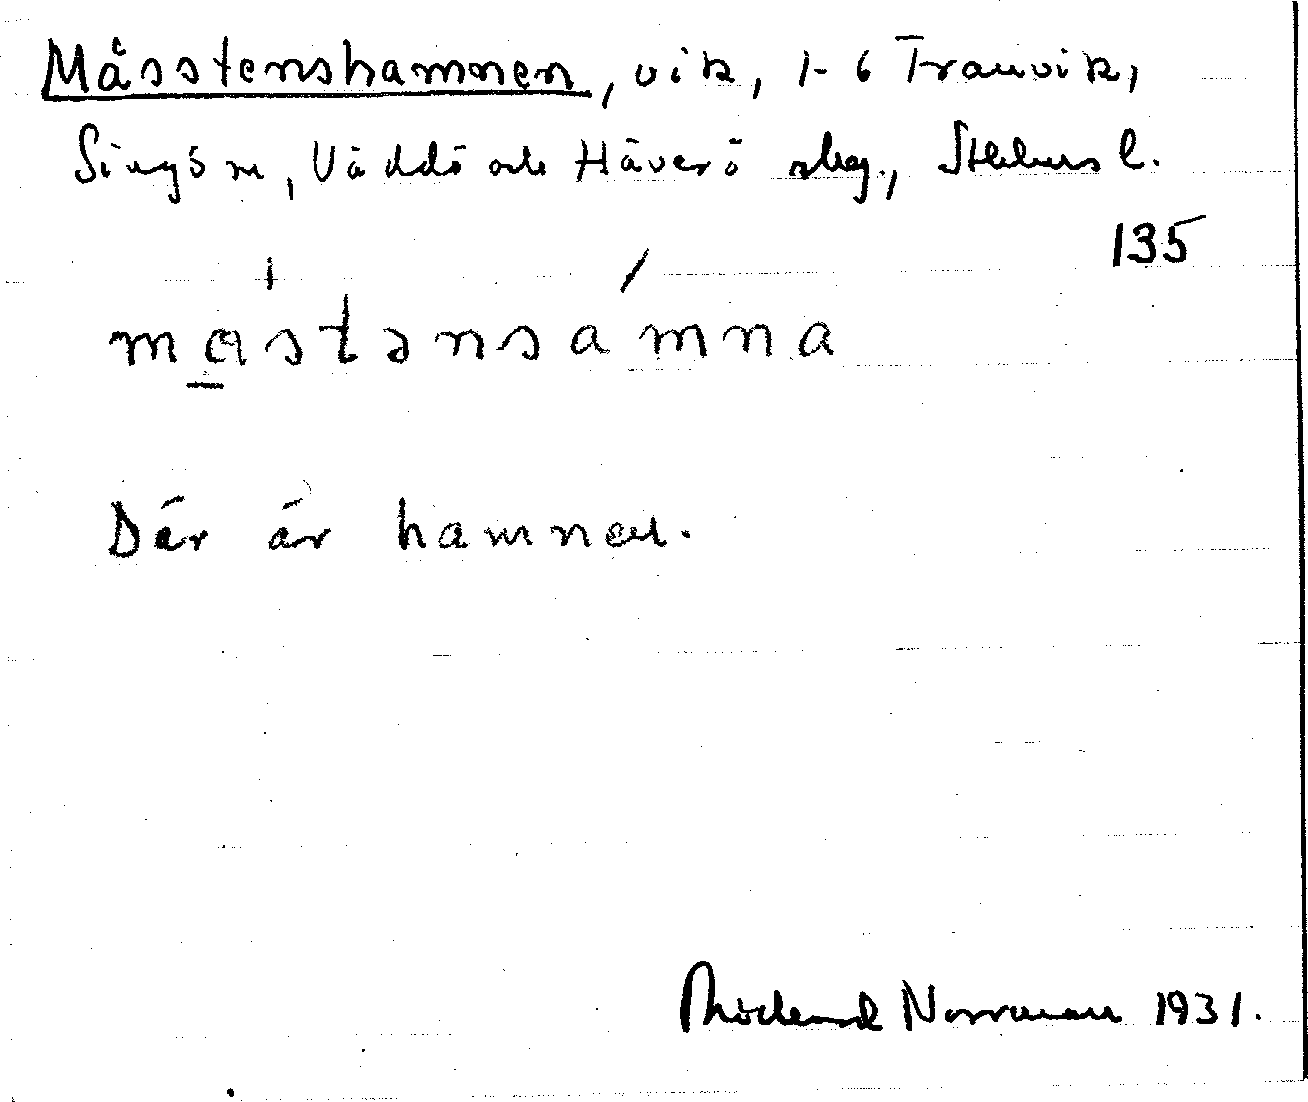 Måsstenshamnen, vik, 1-6 Tranvik,
Singö sn, Väddö och Häverö skg., Sthlms l.
135
måstənsamna
Där är hamnen.
Norrman 1931.